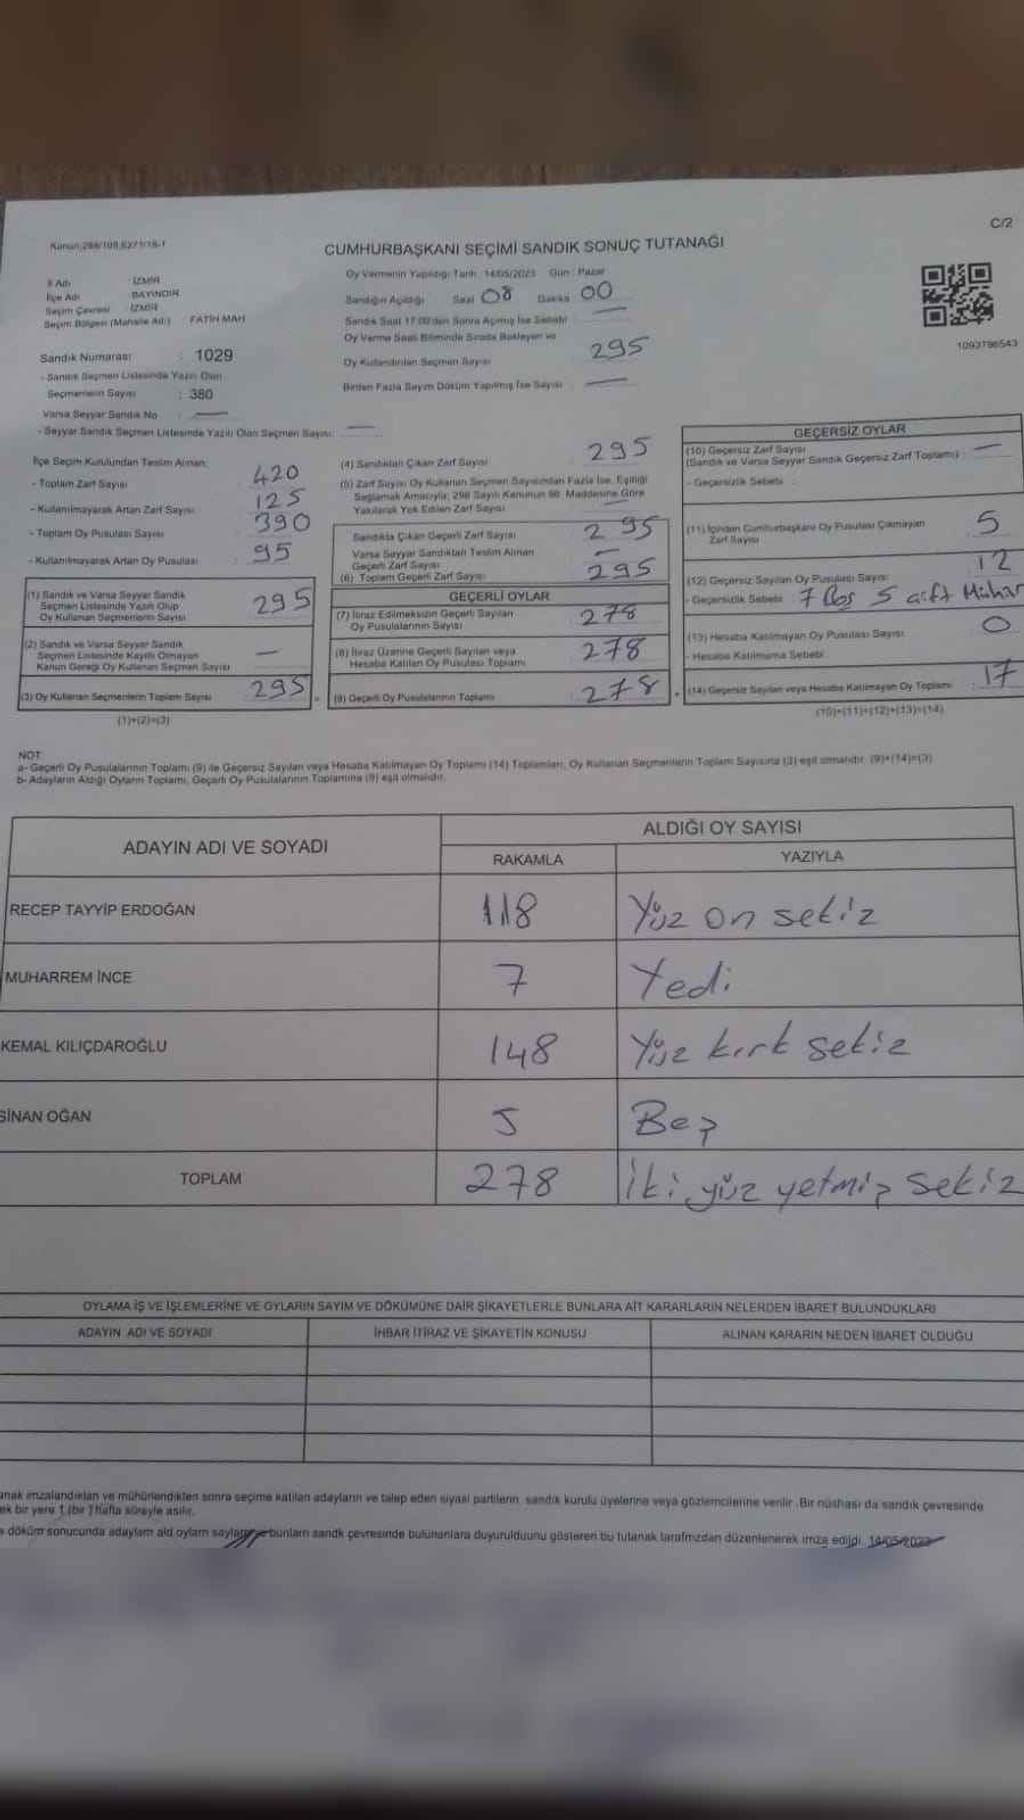 C/2
CUMHURBAŞKANI SEÇİMİ SANDIK SONUÇ TUTANAĞI
İl Adı : İZMİR
İlçe Adı : BAYINDIR
Seçim Çevresi : İZMİR
Seçim Bölgesi (Mahalle Adı) : FATİH MAH
Sandık Numarası : 1029
- Sandık Seçmen Listesinde Yazılı Olan
Seçmenlerin Sayısı : 380
Varsa Seyyar Sandık No —
- Seyyar Sandık Seçmen Listesinde Yazılı Olan Seçmen Sayısı: —
Oy Vermenin Yapıldığı Tarih : 14/05/2023 Gün : Pazar
Sandığın Açıldığı Saat 08 Dakika 00
Sandık Saat 17:00'den Sonra Açılmış İse Sebebi —
Oy Verme Saati Bitiminde Sırada Bekleyen ve
Oy Kullandırılan Seçmen Sayısı 295
Birden Fazla Sayım Döküm Yapılmış İse Sayısı —
1093796543
İlçe Seçim Kurulundan Teslim Alınan:
- Toplam Zarf Sayısı : 420
- Kullanılmayarak Artan Zarf Sayısı : 125
- Toplam Oy Pusulası Sayısı : 390
- Kullanılmayarak Artan Oy Pusulası : 95
(1) Sandık ve Varsa Seyyar Sandık
Seçmen Listesinde Yazılı Olup
Oy Kullanan Seçmenlerin Sayısı 295
(2) Sandık ve Varsa Seyyar Sandık
Seçmen Listesinde Kayıtlı Olmayan
Kanun Gereği Oy Kullanan Seçmen Sayısı —
(3) Oy Kullanan Seçmenlerin Toplam Sayısı 295
(1)+(2)=(3)
(4) Sandıktan Çıkan Zarf Sayısı 295
(5) Zarf Sayısı Oy Kullanan Seçmen Sayısından Fazla İse, Eşitliği
Sağlamak Amacıyla; 298 Sayılı Kanunun 98. Maddesine Göre
Yakılarak Yok Edilen Zarf Sayısı —
Sandıkta Çıkan Geçerli Zarf Sayısı 295
Varsa Seyyar Sandıktan Teslim Alınan
Geçerli Zarf Sayısı —
(6) Toplam Geçerli Zarf Sayısı 295
GEÇERLİ OYLAR
(7) İtiraz Edilmeksizin Geçerli Sayılan
Oy Pusulalarının Sayısı 278
(8) İtiraz Üzerine Geçerli Sayılan veya
Hesaba Katılan Oy Pusulası Toplamı 278
(9) Geçerli Oy Pusulalarının Toplamı 278
GEÇERSİZ OYLAR
(10) Geçersiz Zarf Sayısı
(Sandık ve Varsa Seyyar Sandık Geçersiz Zarf Toplamı) : —
- Geçersizlik Sebebi :
(11) İçinden Cumhurbaşkanı Oy Pusulası Çıkmayan
Zarf Sayısı 5
(12) Geçersiz Sayılan Oy Pusulası Sayısı 12
- Geçersizlik Sebebi 7 Boş 5 çift Mühür
(13) Hesaba Katılmayan Oy Pusulası Sayısı 0
- Hesaba Katılmama Sebebi
(14) Geçersiz Sayılan veya Hesaba Katılmayan Oy Toplamı 17
(10)+(11)+(12)+(13)=(14)
NOT:
a- Geçerli Oy Pusulalarının Toplamı (9) ile Geçersiz Sayılan veya Hesaba Katılmayan Oy Toplamı (14) Toplamları, Oy Kullanan Seçmenlerin Toplam Sayısına (3) eşit olmalıdır. (9)+(14)=(3)
b- Adayların Aldığı Oyların Toplamı, Geçerli Oy Pusulalarının Toplamına (9) eşit olmalıdır.
ADAYIN ADI VE SOYADI
ALDIĞI OY SAYISI
RAKAMLA YAZIYLA
RECEP TAYYİP ERDOĞAN 118 Yüz on sekiz
MUHARREM İNCE 7 Yedi
KEMAL KILIÇDAROĞLU 148 Yüz kırk sekiz
SİNAN OĞAN 5 Beş
TOPLAM 278 İki yüz yetmiş sekiz
OYLAMA İŞ VE İŞLEMLERİNE VE OYLARIN SAYIM VE DÖKÜMÜNE DAİR ŞİKAYETLERLE BUNLARA AİT KARARLARIN NELERDEN İBARET BULUNDUKLARI
ADAYIN ADI VE SOYADI İHBAR İTİRAZ VE ŞİKAYETİN KONUSU ALINAN KARARIN NEDEN İBARET OLDUĞU
anak imzalandıktan ve mühürlendikten sonra seçime katılan adayların ve talep eden siyasi partilerin sandık kurulu üyelerine veya gözlemcilerine verilir. Bir nüshası da sandık çevresinde
ek bir yere 1 (bir) hafta süreyle asılır.
döküm sonucunda adaylarn ald oylarn bunlarn sandk çevresinde bulunanlara duyurulduunu gösteren bu tutanak tarafmzdan düzenlenerek imza edildi. 14/05/2023